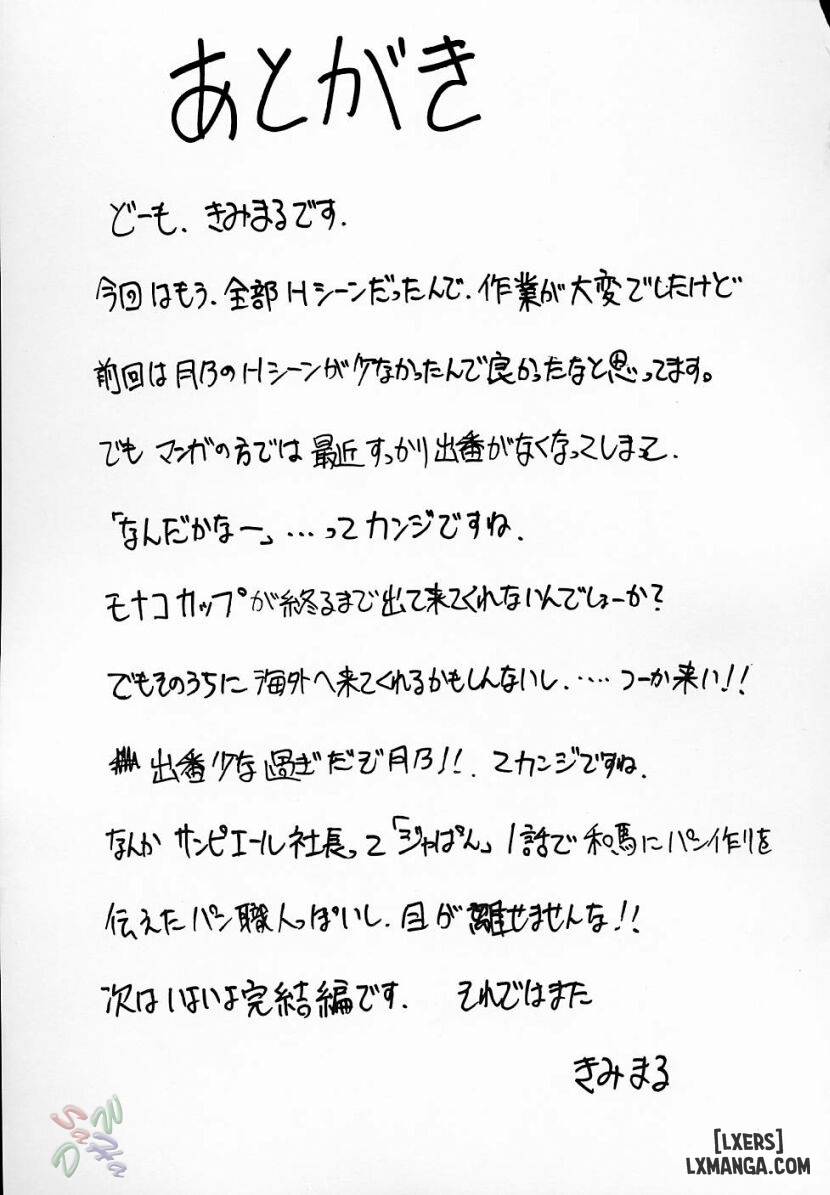 あとがき
どーも、きみまるです.
今回はもう、全部Hシーンだったんで、作業が大変でしたけど
前回は月乃のHシーンが少なかったんで良かったなと思ってます。
でもマンガの方では最近すっかり出番がなくなってしまって、
「なんだかなー」...ってカンジですね、
モナコカップが終るまで出て来てくれないんでしょーか?
でもそのうちに海外へ来てくれるかもしんないし、....つーか来い!!
出番少な過ぎだぞ月乃!!、てカンジですね、
なんかサンピエール社長って「ジャぱん」1話で和馬にパン作りを
伝えたパン職人っぽいし、目が離せませんな!!
次はいよいよ完結編です. それではまた
きみまる
SaHa
[LXERS]
LXMANGA.COM